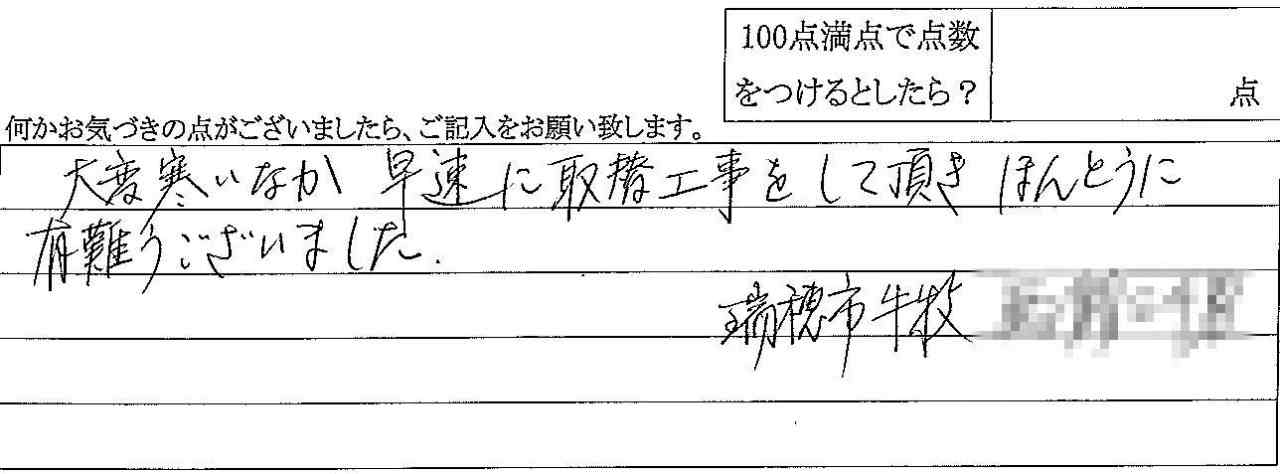 100点満点で点数
をつけるとしたら？
点
何かお気づきの点がございましたら、ご記入をお願い致します。
大変寒いなか 早速に取替工事をして頂き ほんとうに
有難うございました.
瑞穂市牛牧